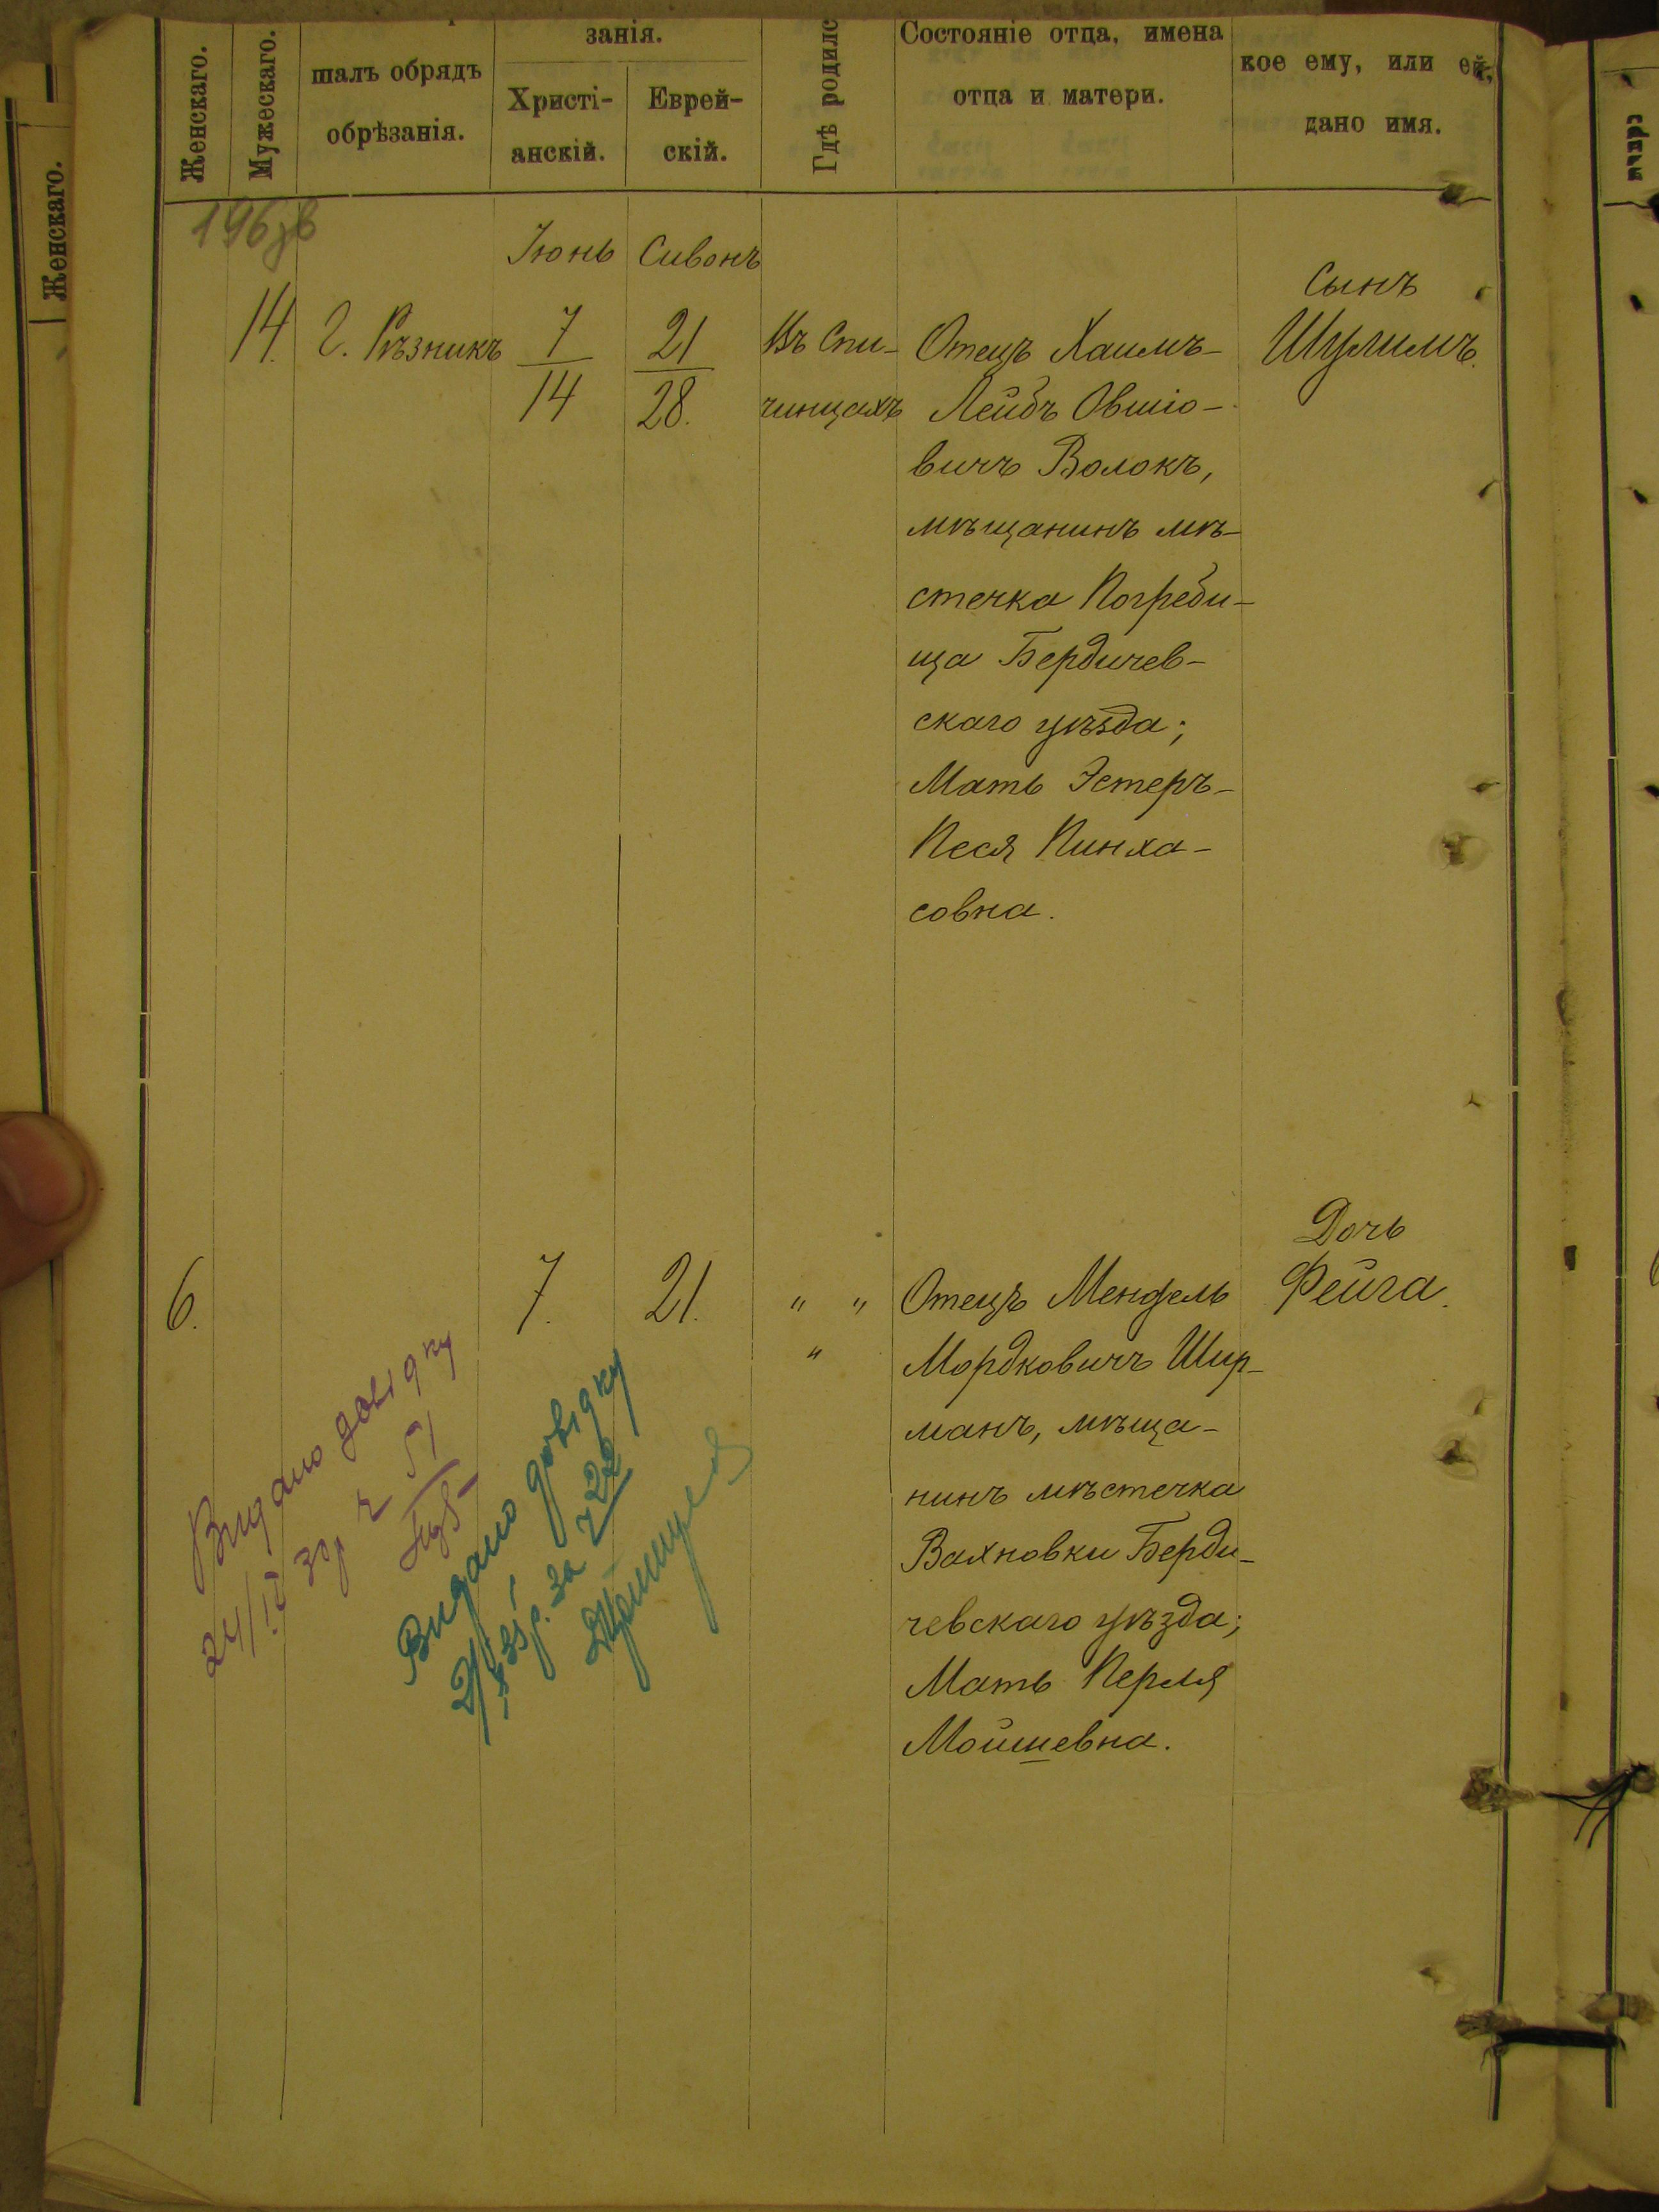 Женскаго.
Женскаго.
Мужескаго.
шалъ обрядъ
обрѣзанія.
занія.
Христі-
анскій.
Еврей-
скій.
Гдѣ родилс
Состояніе отца, имена
отца и матери.
кое ему, или ей,
дано имя.
196
Іюнь Сивонъ
Сынъ
14. Г. Рѣзникъ 7 21 Въ Спи- Отецъ Хаимъ- Шулимъ.
14 28. чинцахъ Лейбъ Овшіо-
вичъ Волокъ,
мѣщанинъ мѣ-
стечка Погреби-
ща Бердичев-
скаго уѣзда;
Мать Эстеръ-
Песя Пинха-
совна.
Дочь
6. 7. 21. " " Отецъ Мендель Фейга.
" Мордковичъ Шир-
манъ, мѣща-
нинъ мѣстечка
Вахновки Берди-
чевскаго уѣзда;
Мать Перля
Мойшевна.
Видано довідку
24/IV 30р ч 51
Видано довідку
за ч 22